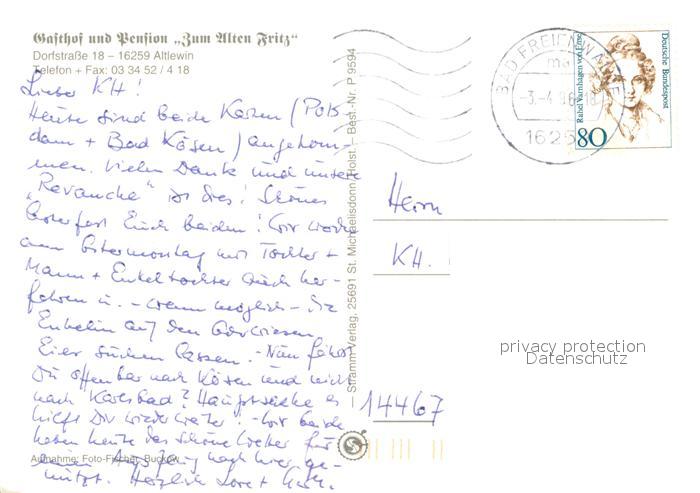 Gasthof und Pension „Zum Alten Fritz“
Dorfstraße 18 – 16259 Altlewin
Telefon + Fax: 03 34 52 / 4 18
Lieber KH!
Heute sind beide Karten (Pots-
dam + Bad Kösen) angekom-
men. Vielen Dank und unsere
„Revanche“ ist dies! Schönes
Osterfest Euch beiden! Wir werden
am Ostermontag mit Tochter +
Mann + Enkeltochter auch her-
fahren u. – wenn möglich – die
Enkelin auf den Oderwiesen
Eier suchen lassen. – Nun fährst
Du offenbar nach Kösen und nicht
nach Karlsbad? Hauptsache es
hilft Dir wieder weiter. – Wir beide
haben heute das schöne Wetter für
einen Ausflug nach hier ge-
nutzt. Herzlich Lore +
Aufnahme: Foto-Fischer, Buckow
Stramm-Verlag, 25691 St. Michaelisdonn/Holst. – Best.-Nr. P 9594
BAD FREIENWALDE
-3.-4.96-18
1625
Rahel Varnhagen von Ense
Deutsche Bundespost
80
Herrn
KH.
14467
privacy protection
Datenschutz